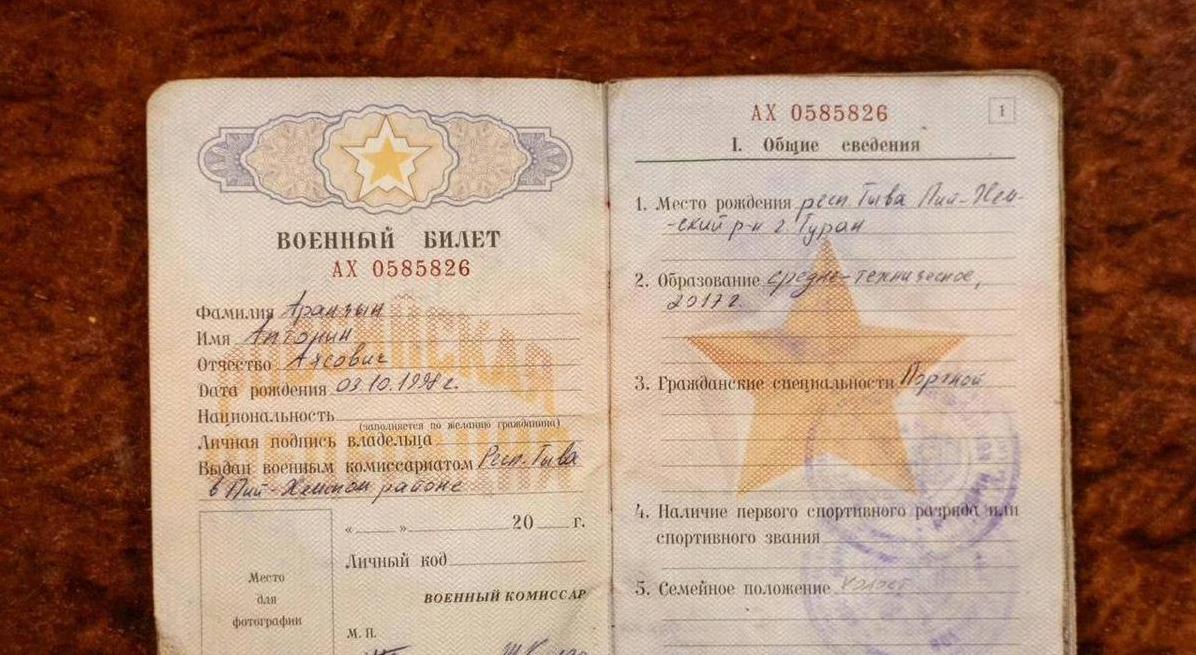 ВОЕННЫЙ БИЛЕТ
АХ 0585826
Фамилия Аранчын
Имя
Отчество Аясович
Дата рождения 03.10.1998 г.
Национальность
(заполняется по желанию гражданина)
Личная подпись владельца
Выдан военным комиссариатом Респ. Тыва
в Пий-Хемском районе
« » 20 г.
Личный код
Место
для
фотографии
ВОЕННЫЙ КОМИССАР
М. П.
АХ 0585826
1
I. Общие сведения
1. Место рождения респ Тыва Пий-Хем-
-ский р-н г Туран
2. Образование средне-техническое,
2017 г.
3. Гражданские специальности Портной
4. Наличие первого спортивного разряда или
спортивного звания
5. Семейное положение холост